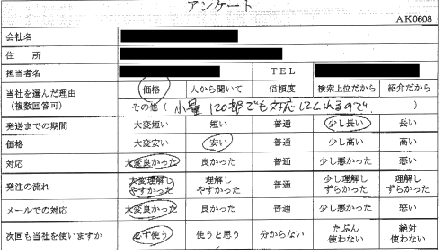 アンケート
AK0608
会社名
住 所
担当者名 TEL
当社を選んだ理由 (複数回答可) 価格 人から聞いて 信頼度 検索上位だから 紹介だから
その他 ( 小量 120部でも対応してくれるので )
発送までの期間 大変短い 短い 普通 少し長い 長い
価格 大変安い 安い 普通 少し高い 高い
対応 大変良かった 良かった 普通 少し悪かった 悪い
発注の流れ 大変理解しやすかった 理解しやすかった 普通 少し理解しずらかった 理解しずらかった
メールでの対応 大変良かった 良かった 普通 少し悪かった 悪い
次回も当社を使いますか 必ず使う 使うと思う 分からない たぶん使わない 絶対使わない